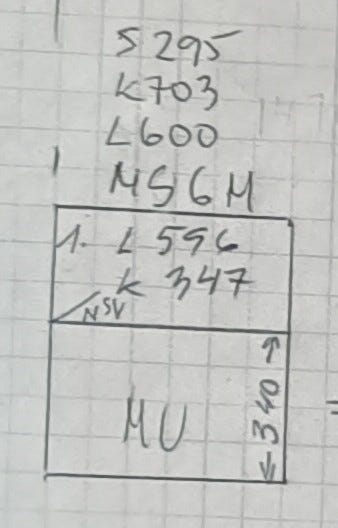 S 295
K703
L600
MS6M
1. L 596
K 347
NSV
MU
340